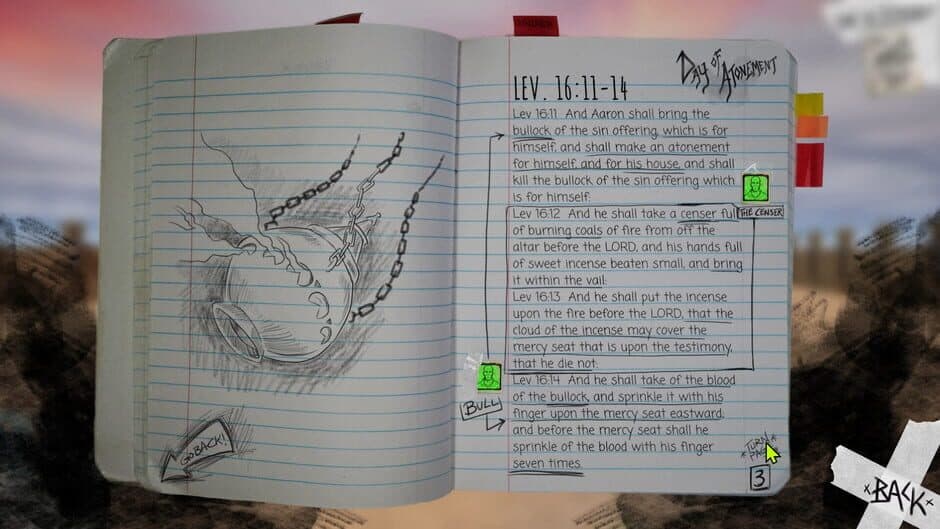 DAY OF ATONEMENT
LEV. 16:11-14
Lev 16:11 And Aaron shall bring the
bullock of the sin offering, which is for
himself, and shall make an atonement
for himself, and for his house, and shall
kill the bullock of the sin offering which
is for himself:
Lev 16:12 And he shall take a censer full
THE CENSER
of burning coals of fire from off the
altar before the LORD, and his hands full
of sweet incense beaten small, and bring
it within the vail:
Lev 16:13 And he shall put the incense
upon the fire before the LORD, that the
cloud of the incense may cover the
mercy seat that is upon the testimony,
that he die not:
Lev 16:14 And he shall take of the blood
of the bullock, and sprinkle it with his
BULL
finger upon the mercy seat eastward;
and before the mercy seat shall he
sprinkle of the blood with his finger
seven times.
GO BACK!
TURN
PAGE
3
BACK